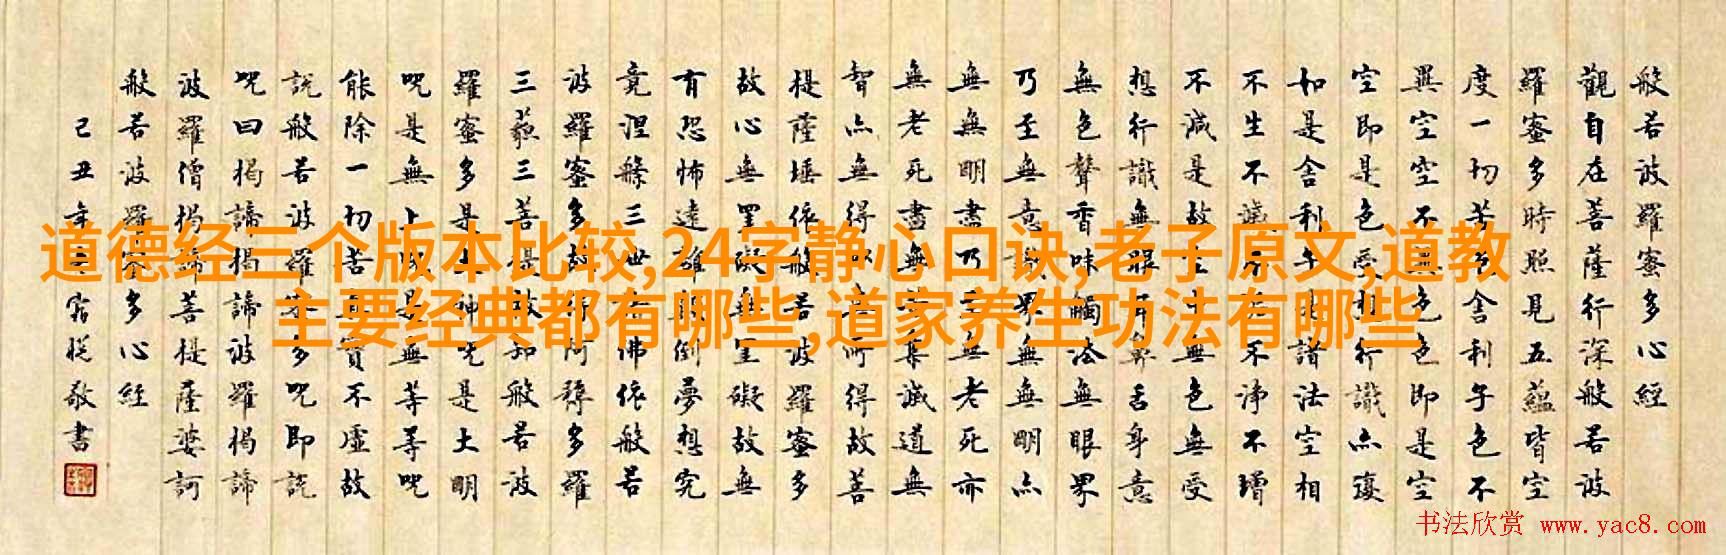 道德经三个版本比较,24字静心口诀,老子原文,道教
主要经典都有哪些,道家养生功法有哪些
般若波羅蜜多心經
觀自在菩薩行深般若波
羅蜜多時照見五蘊皆空
度一切苦厄舍利子色不
異空空不異色色即是空
空即是色受想行識亦復
如是舍利子是諸法空相
不生不滅不垢不淨不增
不減是故空中無色無受
想行識無眼耳鼻舌身意
無色聲香味觸法無眼界
乃至無意識界無無明亦
無無明盡乃至無老死亦
無老死盡無苦集滅道無
智亦無得以無所得故菩
提薩埵依般若波羅蜜多
故心無罣礙無罣礙故無
有恐怖遠離顛倒夢想究
竟涅槃三世諸佛依般若
波羅蜜多故得阿耨多羅
三藐三菩提故知般若波
羅蜜多是大神咒是大明
咒是無上咒是無等等咒
能除一切苦真實不虛故
說般若波羅蜜多咒即說
咒曰揭諦揭諦波羅揭諦
波羅僧揭諦菩提薩婆訶
般若波羅蜜多心經
己丑年敬書
书法欣赏 www.yac8.com